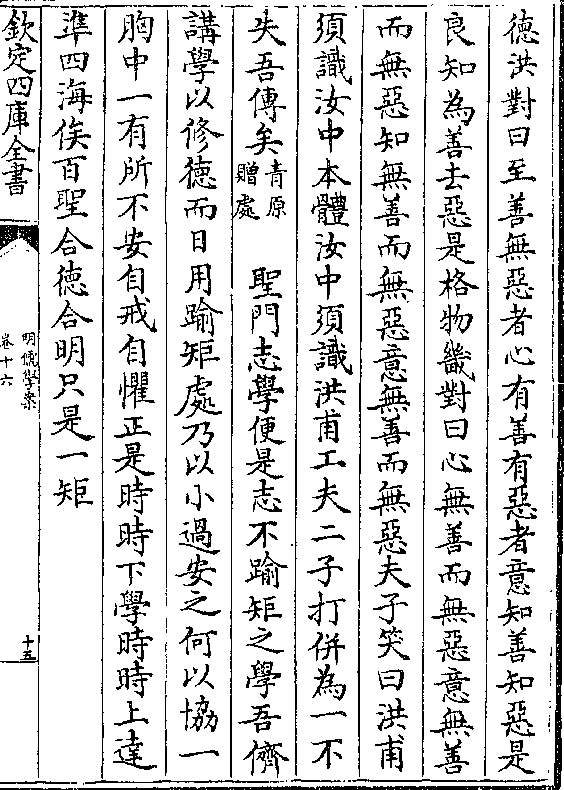 德洪對曰至善無惡者心有善有惡者意知善知惡是
良知為善去惡是格物畿對曰心無善而無惡意無善
而無惡知無善而無惡意無善而無惡夫子笑曰洪甫
須識汝中本體汝中須識洪甫工夫二子打併為一不
失吾傳矣青原贈處 聖門志學便是志不踰矩之學吾儕
講學以修德而日用踰矩處乃以小過安之何以協一
胸中一有所不安自戒自懼正是時時下學時時上達
準四海俟百聖合德合明只是一矩
欽定四庫全書
明儒學案
卷十六
十五